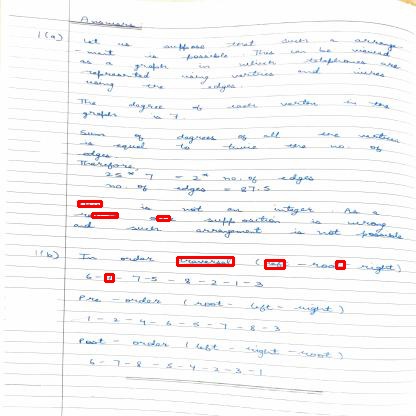 Answers
1(a) Let us suppose that such a arrange
-ment is possible. This can be viewed
as a graph in which telephones are
represented using vertices and wires
using the edges.
The degree of each vertex in the
graph is 7.
Sum of degrees of all the vertices
is equal to twice the no. of
edges.
Therefore,
25 * 7 = 2 * no. of edges
no. of edges = 87.5
is not an integer. As a
supposition is wrong
and such arrangement is not possible
1(b) In order (- right)
6 - - 7 - 5 - 8 - 2 - 1 - 3
Pre - order (root - left - right)
1 - 2 - 4 - 6 - 5 - 7 - 8 - 3
Post - order (left - right - root)
6 - 7 - 8 - 5 - 4 - 2 - 3 - 1